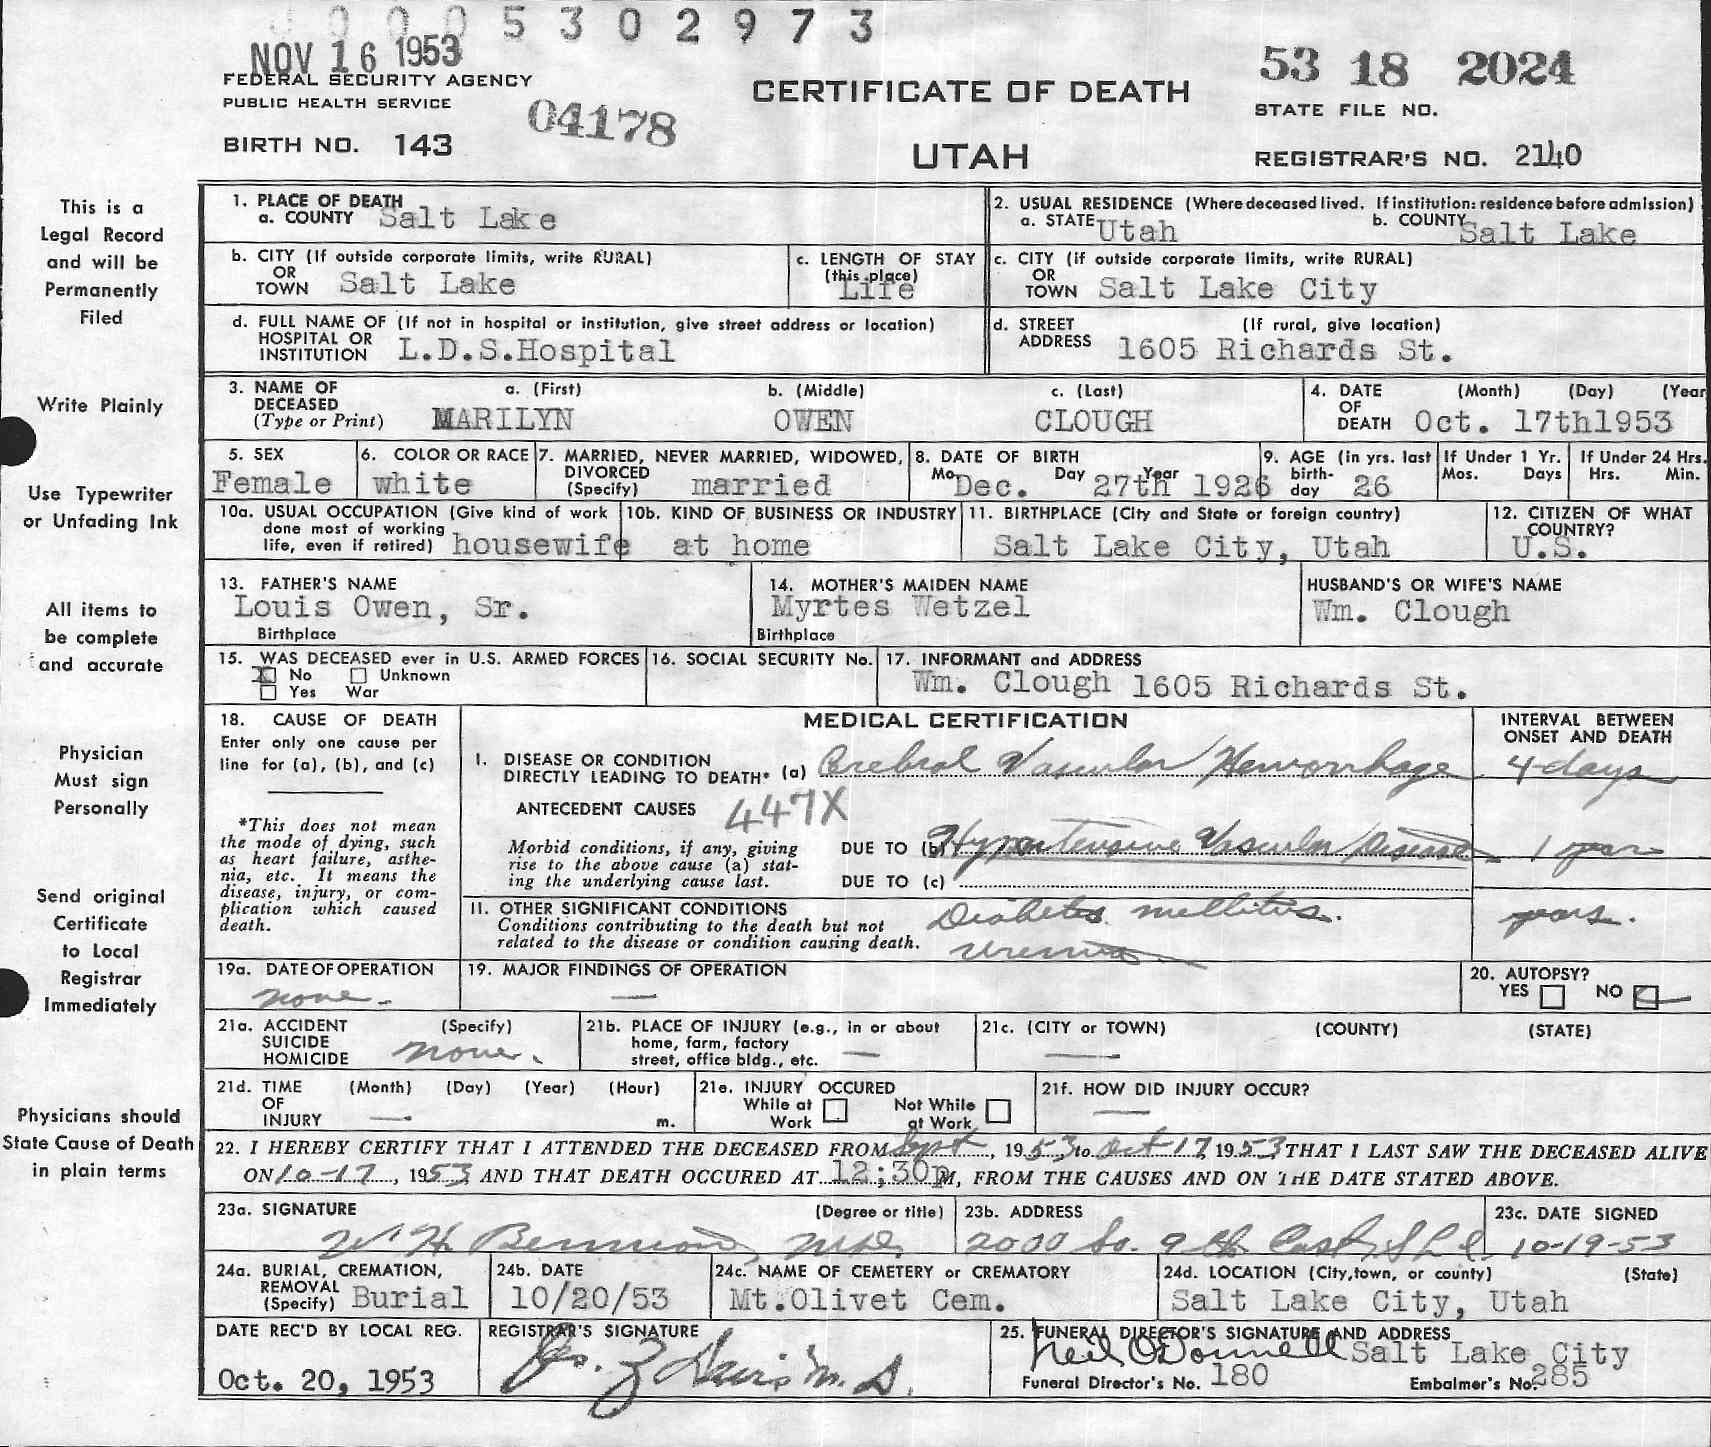 0005302973
NOV 16 1953
53 18 2024
FEDERAL SECURITY AGENCY
PUBLIC HEALTH SERVICE
04178
CERTIFICATE OF DEATH
STATE FILE NO.
BIRTH NO. 143
UTAH
REGISTRAR'S NO. 2140
This is a
Legal Record
and will be
Permanently
Filed
Write Plainly
Use Typewriter
or Unfading Ink
All items to
be complete
and accurate
Physician
Must sign
Personally
Send original
Certificate
to Local
Registrar
Immediately
Physicians should
State Cause of Death
in plain terms
1. PLACE OF DEATH
a. COUNTY Salt Lake
2. USUAL RESIDENCE (Where deceased lived. If institution: residence before admission)
a. STATE Utah b. COUNTY Salt Lake
b. CITY (If outside corporate limits, write RURAL)
OR
TOWN Salt Lake
c. LENGTH OF STAY
(this place)
Life
c. CITY (if outside corporate limits, write RURAL)
OR
TOWN Salt Lake City
d. FULL NAME OF (If not in hospital or institution, give street address or location)
HOSPITAL OR
INSTITUTION L.D.S.Hospital
d. STREET (If rural, give location)
ADDRESS 1605 Richards St.
3. NAME OF DECEASED (Type or Print)
a. (First) b. (Middle) c. (Last)
MARILYN OWEN CLOUGH
4. DATE (Month) (Day) (Year
OF
DEATH Oct. 17th1953
5. SEX
Female
6. COLOR OR RACE
white
7. MARRIED, NEVER MARRIED, WIDOWED,
DIVORCED
(Specify) married
8. DATE OF BIRTH
Mo. Dec. Day 27th Year 1926
9. AGE (in yrs. last
birth-
day 26
If Under 1 Yr.
Mos. Days
If Under 24 Hrs.
Hrs. Min.
10a. USUAL OCCUPATION (Give kind of work
done most of working
life, even if retired) housewife
10b. KIND OF BUSINESS OR INDUSTRY
at home
11. BIRTHPLACE (City and State or foreign country)
Salt Lake City, Utah
12. CITIZEN OF WHAT
COUNTRY?
U.S.
13. FATHER'S NAME
Louis Owen, Sr.
Birthplace
14. MOTHER'S MAIDEN NAME
Myrtes Wetzel
Birthplace
HUSBAND'S OR WIFE'S NAME
Wm. Clough
15. WAS DECEASED ever in U.S. ARMED FORCES
X No Unknown
Yes War
16. SOCIAL SECURITY No.
17. INFORMANT and ADDRESS
Wm. Clough 1605 Richards St.
18. CAUSE OF DEATH
Enter only one cause per
line for (a), (b), and (c)
*This does not mean
the mode of dying, such
as heart failure, asthe-
nia, etc. It means the
disease, injury, or com-
plication which caused
death.
MEDICAL CERTIFICATION
INTERVAL BETWEEN
ONSET AND DEATH
I. DISEASE OR CONDITION
DIRECTLY LEADING TO DEATH* (a) Cerebral Vascular Hemorrhage 4 days
ANTECEDENT CAUSES 447X
Morbid conditions, if any, giving
rise to the above cause (a) stat-
ing the underlying cause last.
DUE TO (b) Hypertensive Vascular Disease 1 year
DUE TO (c)
II. OTHER SIGNIFICANT CONDITIONS
Conditions contributing to the death but not
related to the disease or condition causing death.
Diabetes mellitus. years.
uremia
19a. DATE OF OPERATION
none.
19. MAJOR FINDINGS OF OPERATION
—
20. AUTOPSY?
YES NO
21a. ACCIDENT (Specify)
SUICIDE
HOMICIDE none.
21b. PLACE OF INJURY (e.g., in or about
home, farm, factory
street, office bldg., etc. —
21c. (CITY or TOWN) (COUNTY) (STATE)
—
21d. TIME (Month) (Day) (Year) (Hour)
OF
INJURY — m.
21e. INJURY OCCURED
While at Work Not While at Work
21f. HOW DID INJURY OCCUR?
—
22. I HEREBY CERTIFY THAT I ATTENDED THE DECEASED FROM Sept, 1953 to Oct 17, 1953 THAT I LAST SAW THE DECEASED ALIVE
ON 10-17, 1953 AND THAT DEATH OCCURED AT 12;30p M, FROM THE CAUSES AND ON THE DATE STATED ABOVE.
23a. SIGNATURE (Degree or title)
W H Bennion, M.D.
23b. ADDRESS
2000 So. 9th East, S L C
23c. DATE SIGNED
10-19-53
24a. BURIAL, CREMATION,
REMOVAL
(Specify) Burial
24b. DATE
10/20/53
24c. NAME OF CEMETERY or CREMATORY
Mt.Olivet Cem.
24d. LOCATION (City,town, or county) (State)
Salt Lake City, Utah
DATE REC'D BY LOCAL REG.
Oct. 20, 1953
REGISTRAR'S SIGNATURE
Davis M. D.
25. FUNERAL DIRECTOR'S SIGNATURE AND ADDRESS
Neil O'Donnell Salt Lake City
Funeral Director's No. 180 Embalmer's No. 285